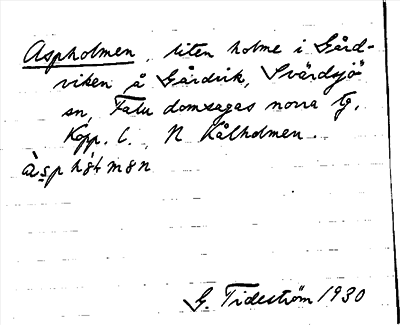 Aspholmen, liten holme i Gård-
viken å Gårdvik, Svärdsjö
sn, Falu domsagas norra tg,
Kopp. l., N Kålholmen.
G. Tideström 1930